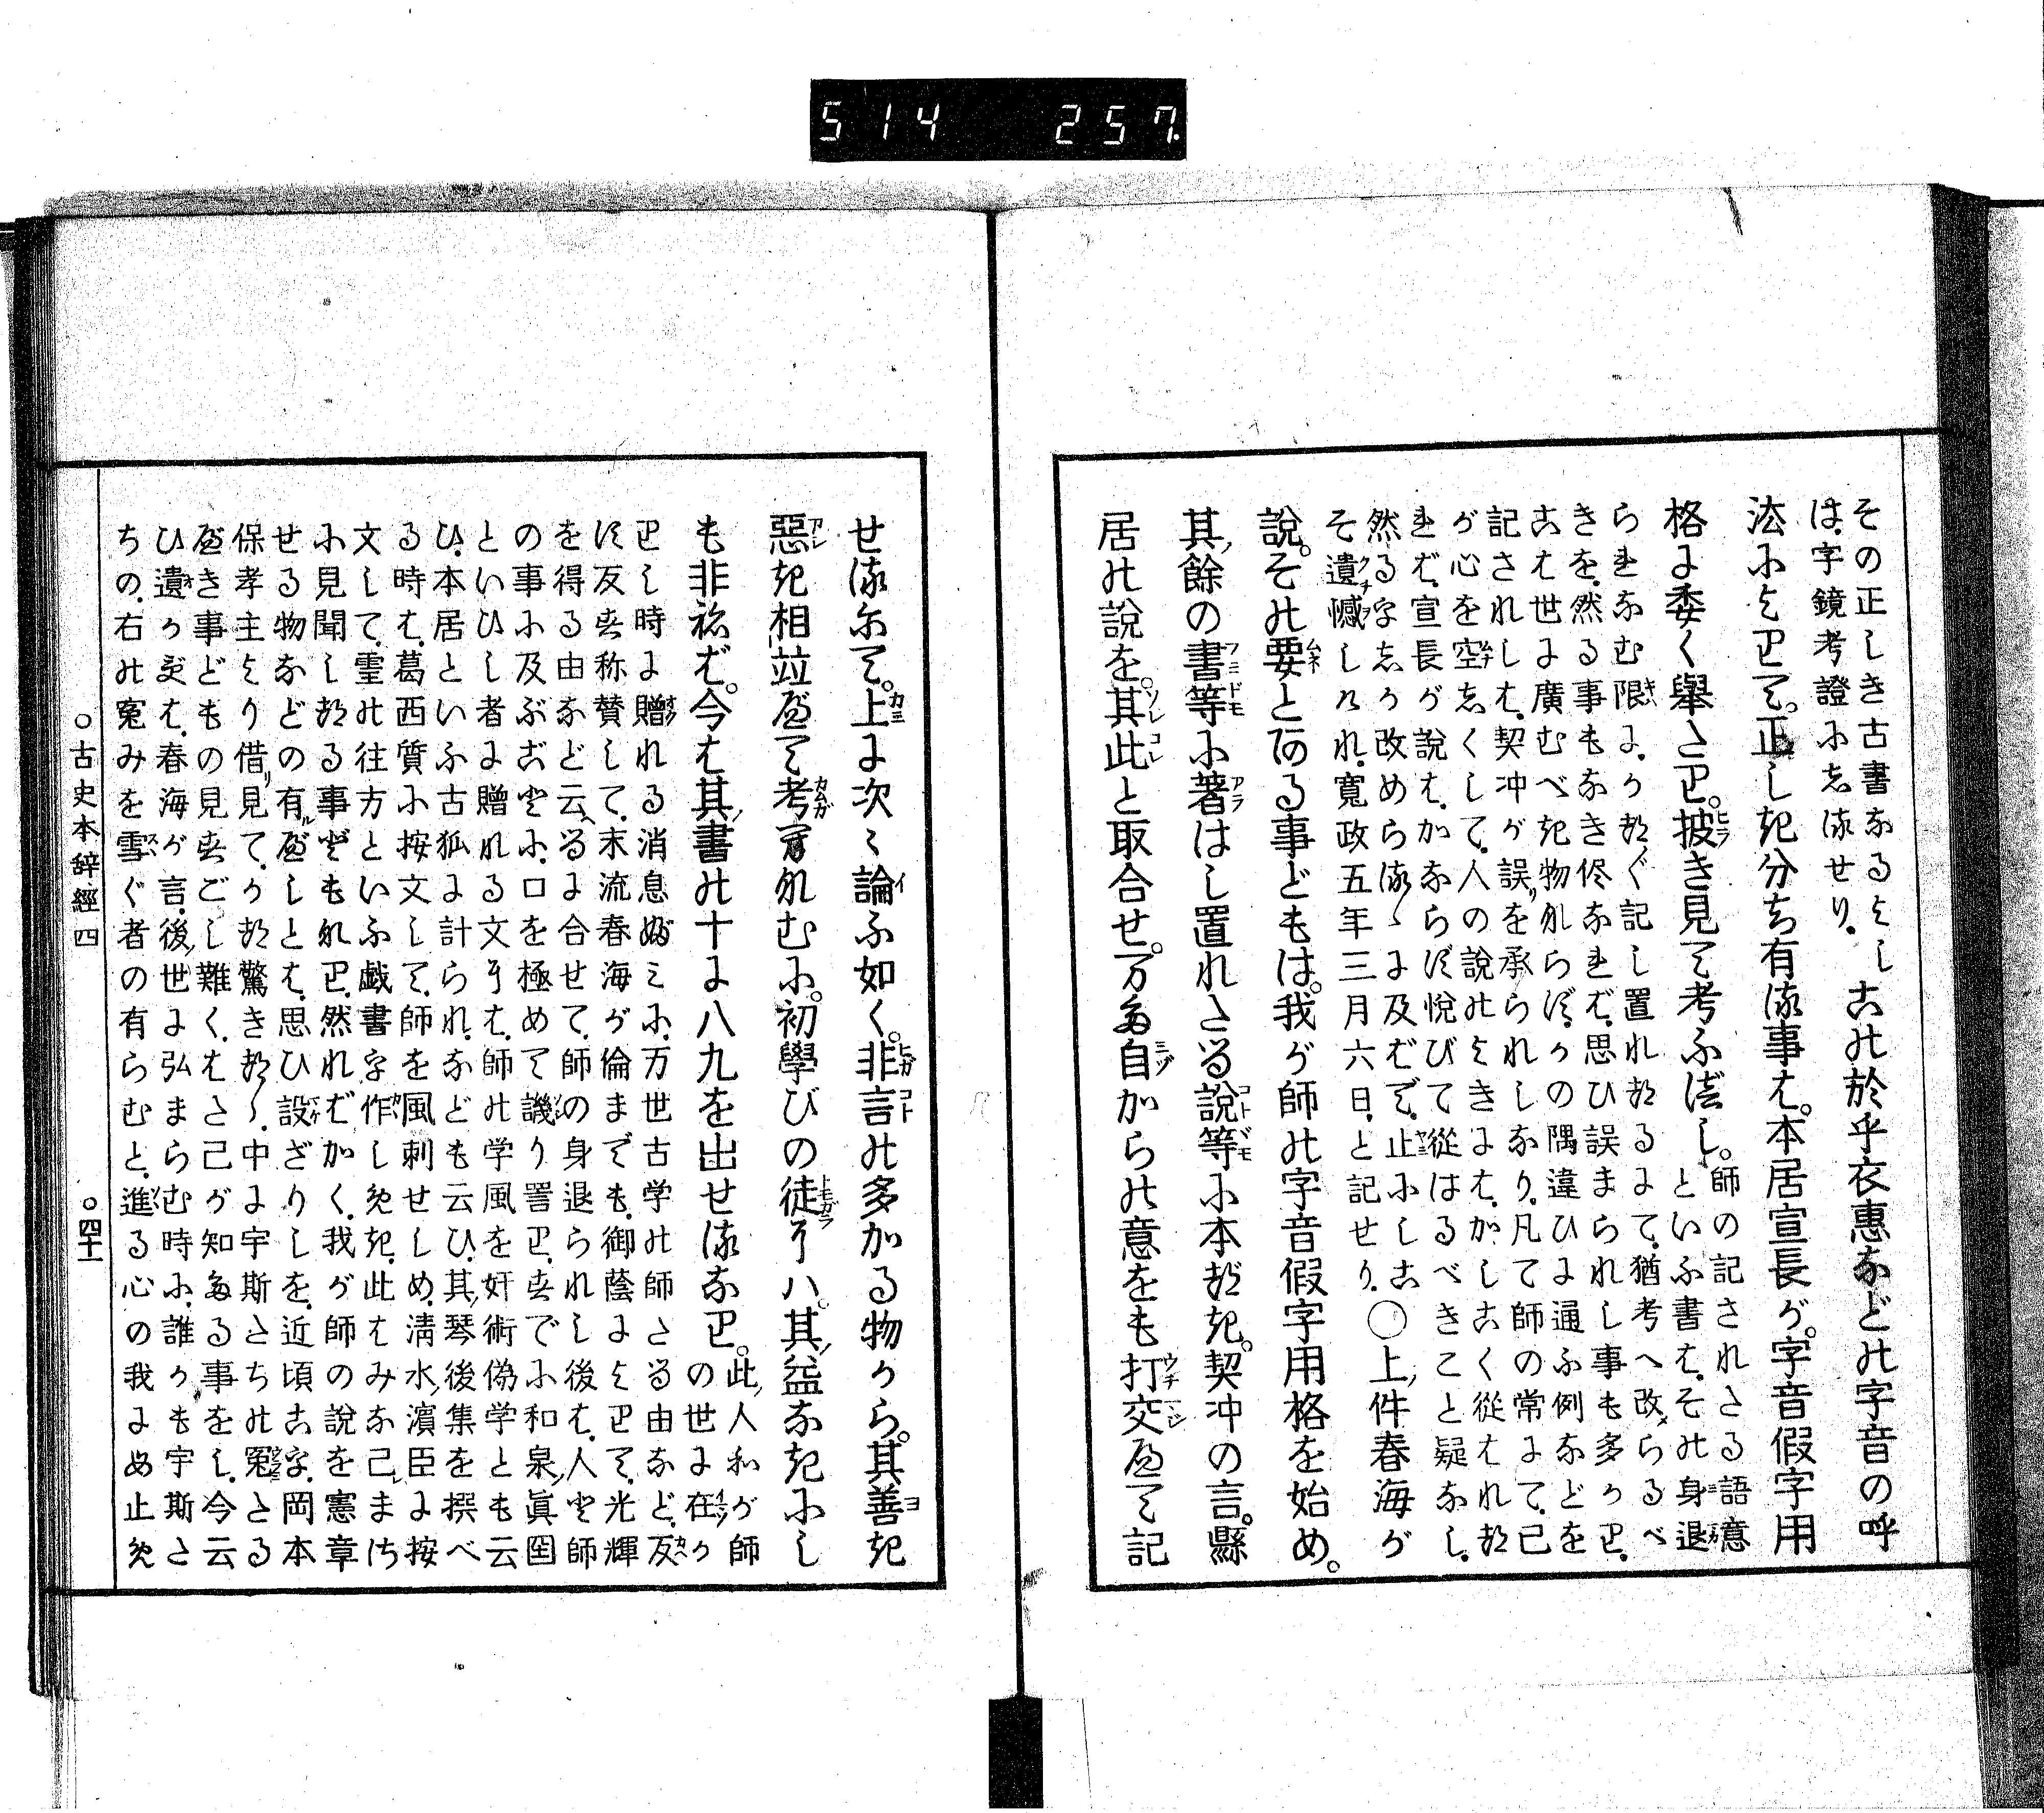 514 257.
その正しき古書なるよし
は、字鏡考證に志るせり。
古の於乎衣惠などの字音の呼
法によりて。正しき分ち有る事は。本居宣長が。字音假字用
格に委く擧たり。披き見て考ふべし。
師の記されたる語意
といふ書は、その身退
らればむ限に、かたぐ記し置れたるにて、猶考へ改らるべ
きを、然る事もなき侭なれば、思ひ誤まられし事も多かり。
こは世に廣むべき物ならず、かの隅違ひに通ふ例などを
記されしは、契沖が誤を承られしなり、凡て師の常にて、己
が心を空志くして、人の説のよきには、かしこく從はれた
れば、宣長が説は、かならず悦びて從はるべきこと疑なし。
然る字志か改めらるゝに及ばで、止にしこ
そ遺憾しけれ、寛政五年三月六日、と記せり。〇上件春海が
説。その要とある事どもは。我が師の字音假字用格を始め。
其餘の書等に著はし置れたる説等に本づき。契沖の言。縣
居の説を。其此と取合せ。万た自からの意をも打交へて記
せるにて。上に次々論ふ如く。非言の多かる物から。其善き
惡き相並べて考万れむに。初學びの徒にハ。其益なきにし
も非ねば。今は其書の十に八九を出せるなり。
此人和が師
の世に在りか
りし時に贈れる消息ぶみに、万世古学の師たる由など、友
に反き称賛して、末流春海が倫までも、御蔭によりて、光輝
を得る由など云へるに合せて、師の身退られし後は、人と師
の事に及ぶごとに、口を極めて譏り詈り、きでに和泉眞国
といひし者に贈れる文には、師の学風を奸術偽学とも云
ひ、本居といふ古狐に計られ、なども云ひ、其琴後集を撰べ
る時は、葛西質に按文して、師を風刺せしめ、淸水濱臣に按
文して、霊の往方といふ戯書字作しめき、此はみな己まさ
に見聞したる事どもなり、然ればかく、我が師の説を憲章
せる物などの有べしとは、思ひ設ざりしを、近頃こ字、岡本
保孝主より借見て、かた驚きたゝ、中に宇斯たちの冤とる
べき事どもの見きごし難く、はた己が知たる事をし、今云
ひ遺か交は、春海が言、後世に弘まらむ時に、誰かも宇斯た
ちの、右の寃みを雪ぐ者の有らむと、進る心の我にめ止め
〇古史本辭經四
〇四十一